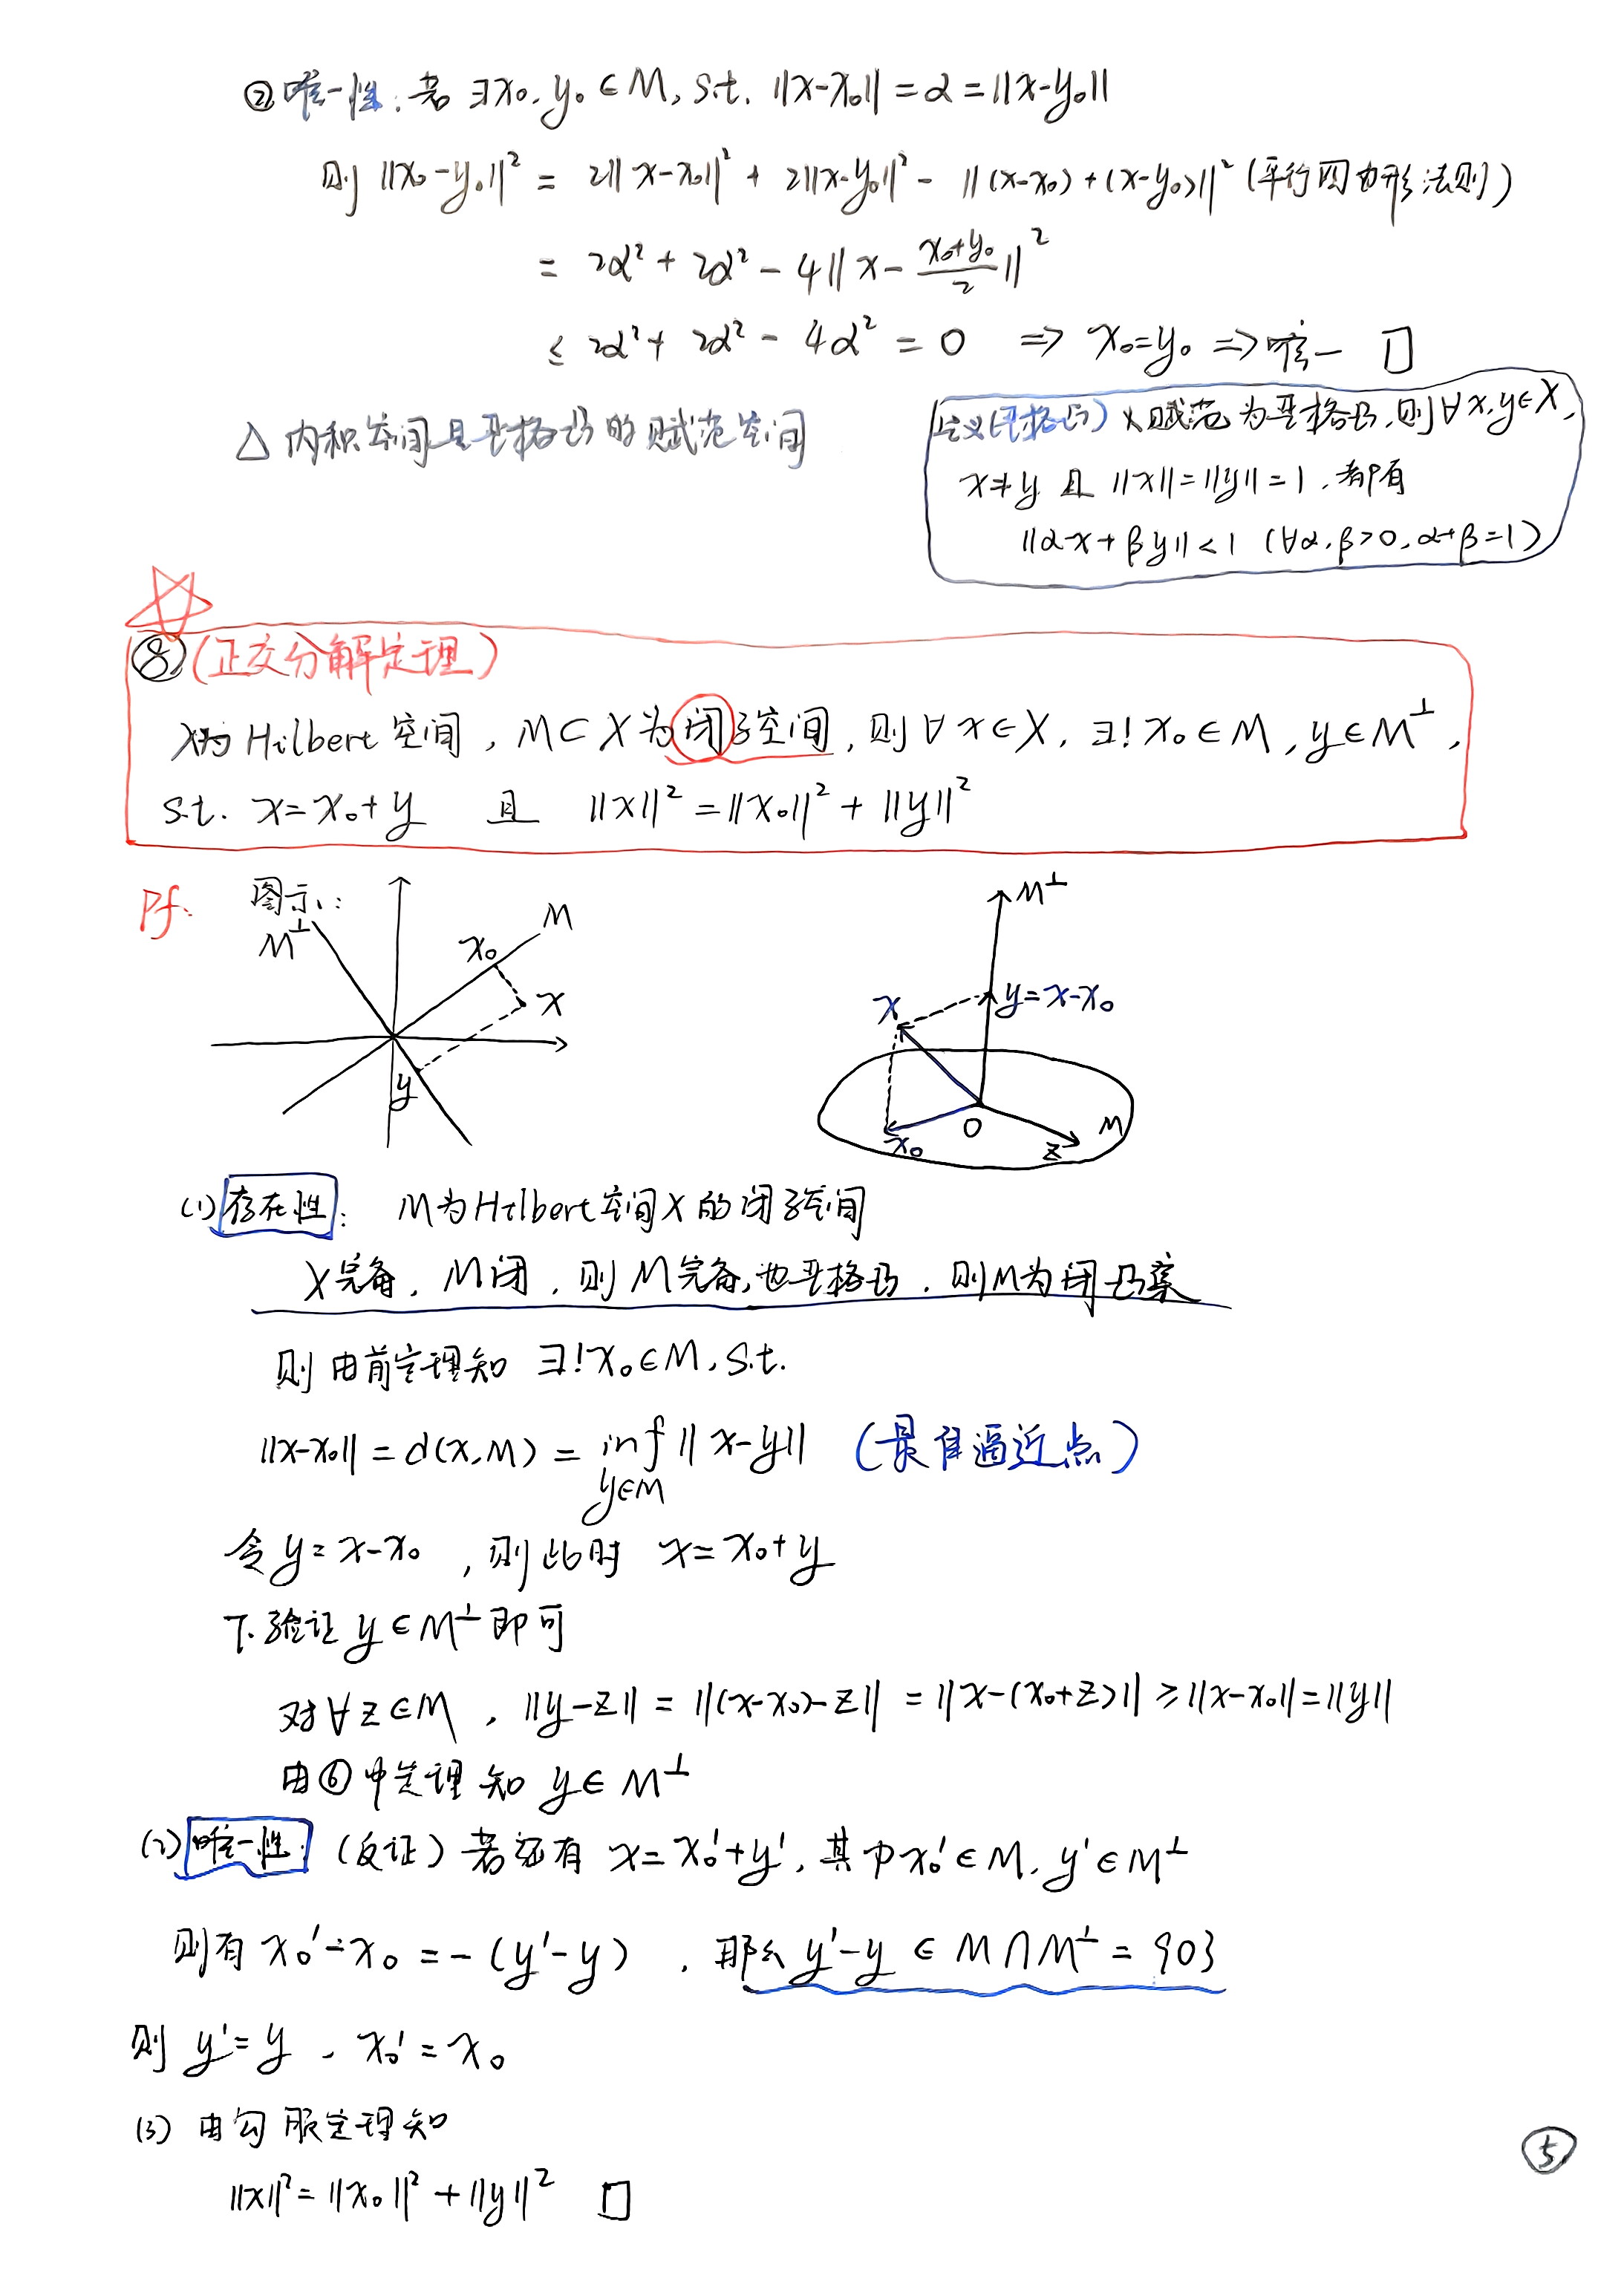 ②唯一性:若 ∃x₀,y₀∈M, s.t. ||x-x₀||=α=||x-y₀||
则 ||x₀-y₀||² = 2||x-x₀||² + 2||x-y₀||² - ||(x-x₀)+(x-y₀)||² (平行四边形法则)
= 2α² + 2α² - 4||x - (x₀+y₀)/2||²
≤ 2α² + 2α² - 4α² = 0 ⇒ x₀=y₀ ⇒唯一 □
△ 内积空间是严格凸的赋范空间
定义(严格凸) X赋范为严格凸,则∀x,y∈X,
x≠y 且 ||x||=||y||=1,都有
||αx+βy||<1 (∀α,β>0,α+β=1)
⑧(正交分解定理)
X为Hilbert空间,M⊂X为闭子空间,则∀x∈X,∃!x₀∈M,y∈M^⊥,
s.t. x=x₀+y 且 ||x||²=||x₀||²+||y||²
Pf.
图示:
M^⊥
M
x₀
x
y
M^⊥
x
y=x-x₀
x₀
O
z
M
(1)存在性: M为Hilbert空间X的闭子空间
X完备,M闭,则M完备,也严格凸,则M为闭凸集
则由前定理知 ∃!x₀∈M,s.t.
||x-x₀|| = d(x,M) = inf_{y∈M} ||x-y|| (最佳逼近点)
令y=x-x₀ ,则此时 x=x₀+y
下验证y∈M^⊥即可
对∀z∈M , ||y-z|| = ||(x-x₀)-z|| = ||x-(x₀+z)|| ≥ ||x-x₀||=||y||
由⑥中定理知 y∈M^⊥
(2)唯一性:(反证)若还有 x=x₀'+y',其中x₀'∈M,y'∈M^⊥
则有 x₀'-x₀ = -(y'-y) ,那么y'-y ∈ M∩M^⊥ = {0}
则 y'=y , x₀'=x₀
(3) 由勾股定理知
||x||²=||x₀||²+||y||² □
⑤